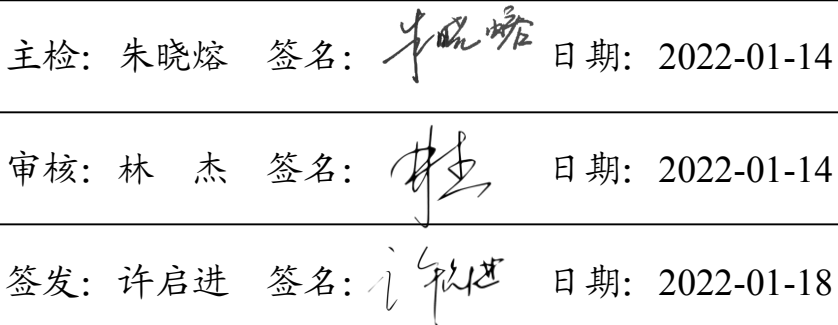 主检: 朱晓熔 签名: 朱晓熔 日期: 2022-01-14
审核: 林 杰 签名: 林杰 日期: 2022-01-14
签发: 许启进 签名: 许启进 日期: 2022-01-18